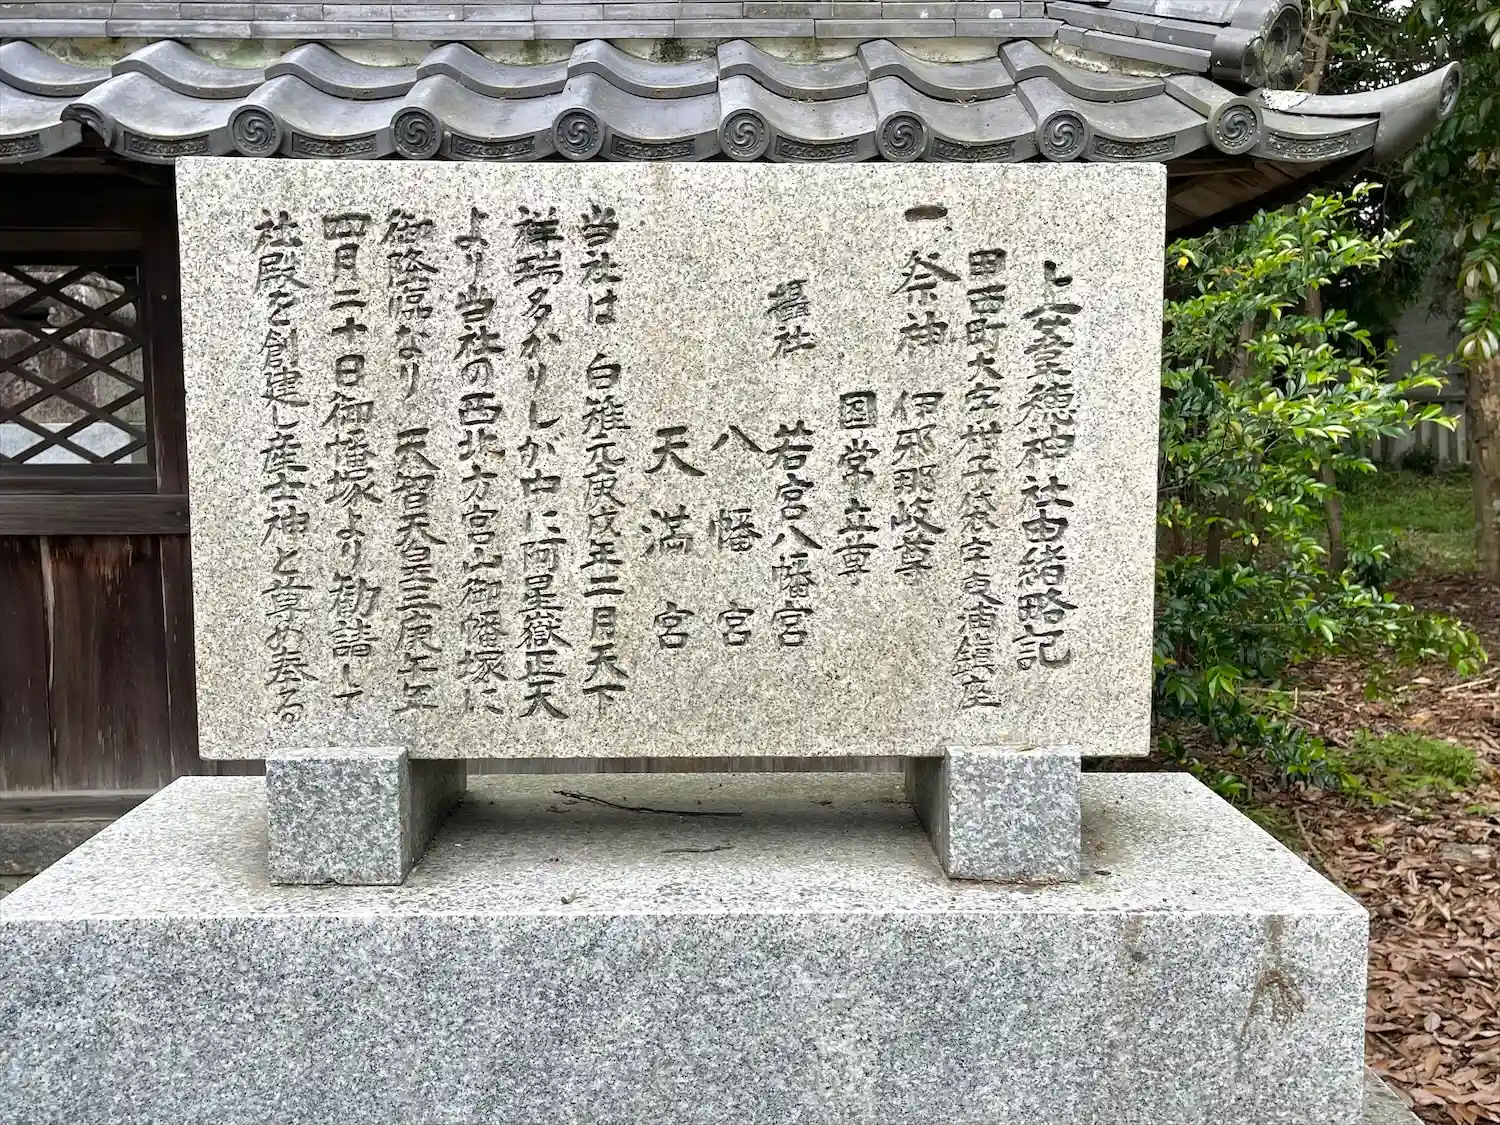 上葦穂神社由緒略記
甲西町大字柑子袋字東浦鎮座
一、祭神 伊邪那岐尊
国常立尊
攝社 若宮八幡宮
八幡宮
天満宮
当社は白雉元庚戌年二月天下
祥瑞多かりしが中に阿星嶽正天
より当社の西北方宮山御幡塚に
御降臨なり 天智天皇三庚午年
四月二十日御幡塚より勧請して
社殿を創建し産土神と尊め奉る